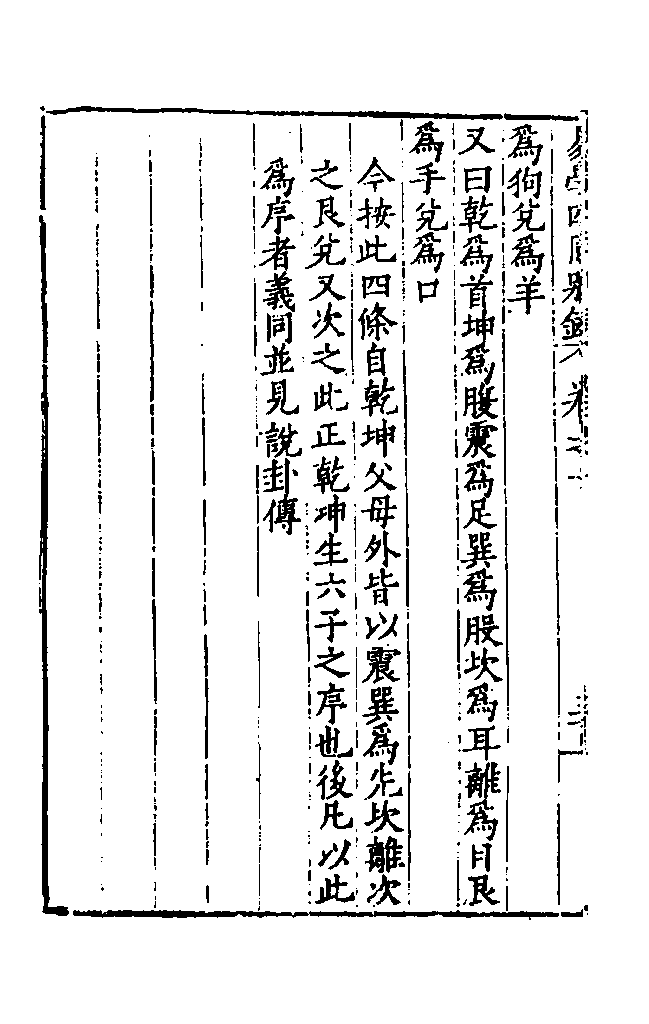 為狗兌為羊
又曰乾為首坤為腹震為足巽為股坎為耳離為目艮
為手兌為口
今按此四條自乾坤父母外皆以震巽為先坎離次
之艮兌又次之此正乾坤生六子之序也後凡以此
為序者義同並見說卦傳